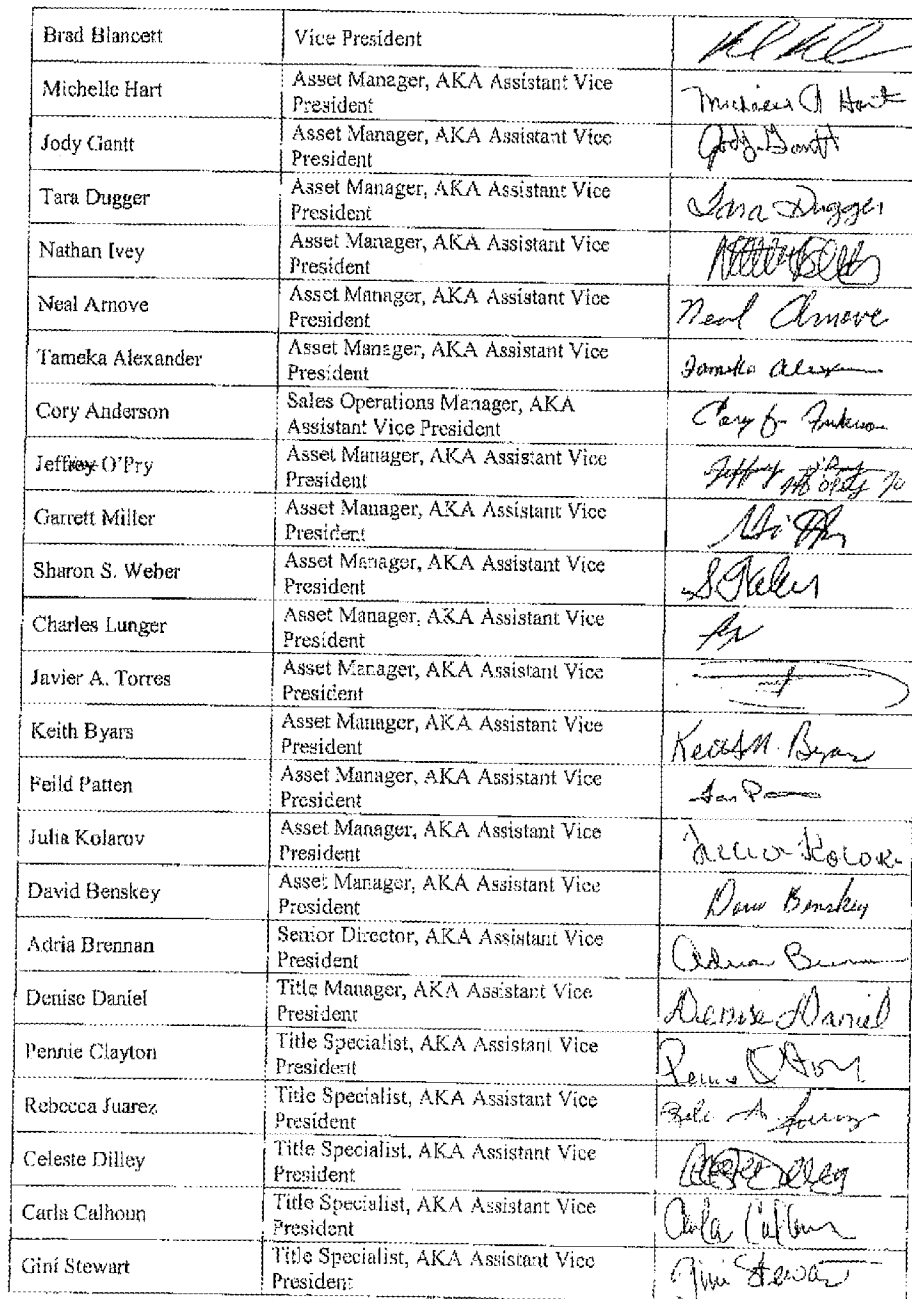 Brad Blancett Vice President
Michelle Hart Asset Manager, AKA Assistant Vice
President Hart
Jody Gantt Asset Manager, AKA Assistant Vice
President Jody Gantt
Tara Dugger Asset Manager, AKA Assistant Vice
President Tara Dugger
Nathan Ivey Asset Manager, AKA Assistant Vice
President
Neal Arnove Asset Manager, AKA Assistant Vice
President Neal Arnove
Tameka Alexander Asset Manager, AKA Assistant Vice
President Tameka
Cory Anderson Sales Operations Manager, AKA
Assistant Vice President
Jeffrey O'Pry Asset Manager, AKA Assistant Vice
President
Garrett Miller Asset Manager, AKA Assistant Vice
President
Sharon S. Weber Asset Manager, AKA Assistant Vice
President
Charles Lunger Asset Manager, AKA Assistant Vice
President
Javier A. Torres Asset Manager, AKA Assistant Vice
President
Keith Byars Asset Manager, AKA Assistant Vice
President Keith M. Byars
Feild Patten Asset Manager, AKA Assistant Vice
President
Julia Kolarov Asset Manager, AKA Assistant Vice
President
David Benskey Asset Manager, AKA Assistant Vice
President Benskey
Adria Brennan Senior Director, AKA Assistant Vice
President
Denise Daniel Title Manager, AKA Assistant Vice
President Denise Daniel
Pennie Clayton Title Specialist, AKA Assistant Vice
President
Rebecca Juarez Title Specialist, AKA Assistant Vice
President
Celeste Dilley Title Specialist, AKA Assistant Vice
President
Carla Calhoun Title Specialist, AKA Assistant Vice
President Carla Calhoun
Gini Stewart Title Specialist, AKA Assistant Vice
President Gini Stewart